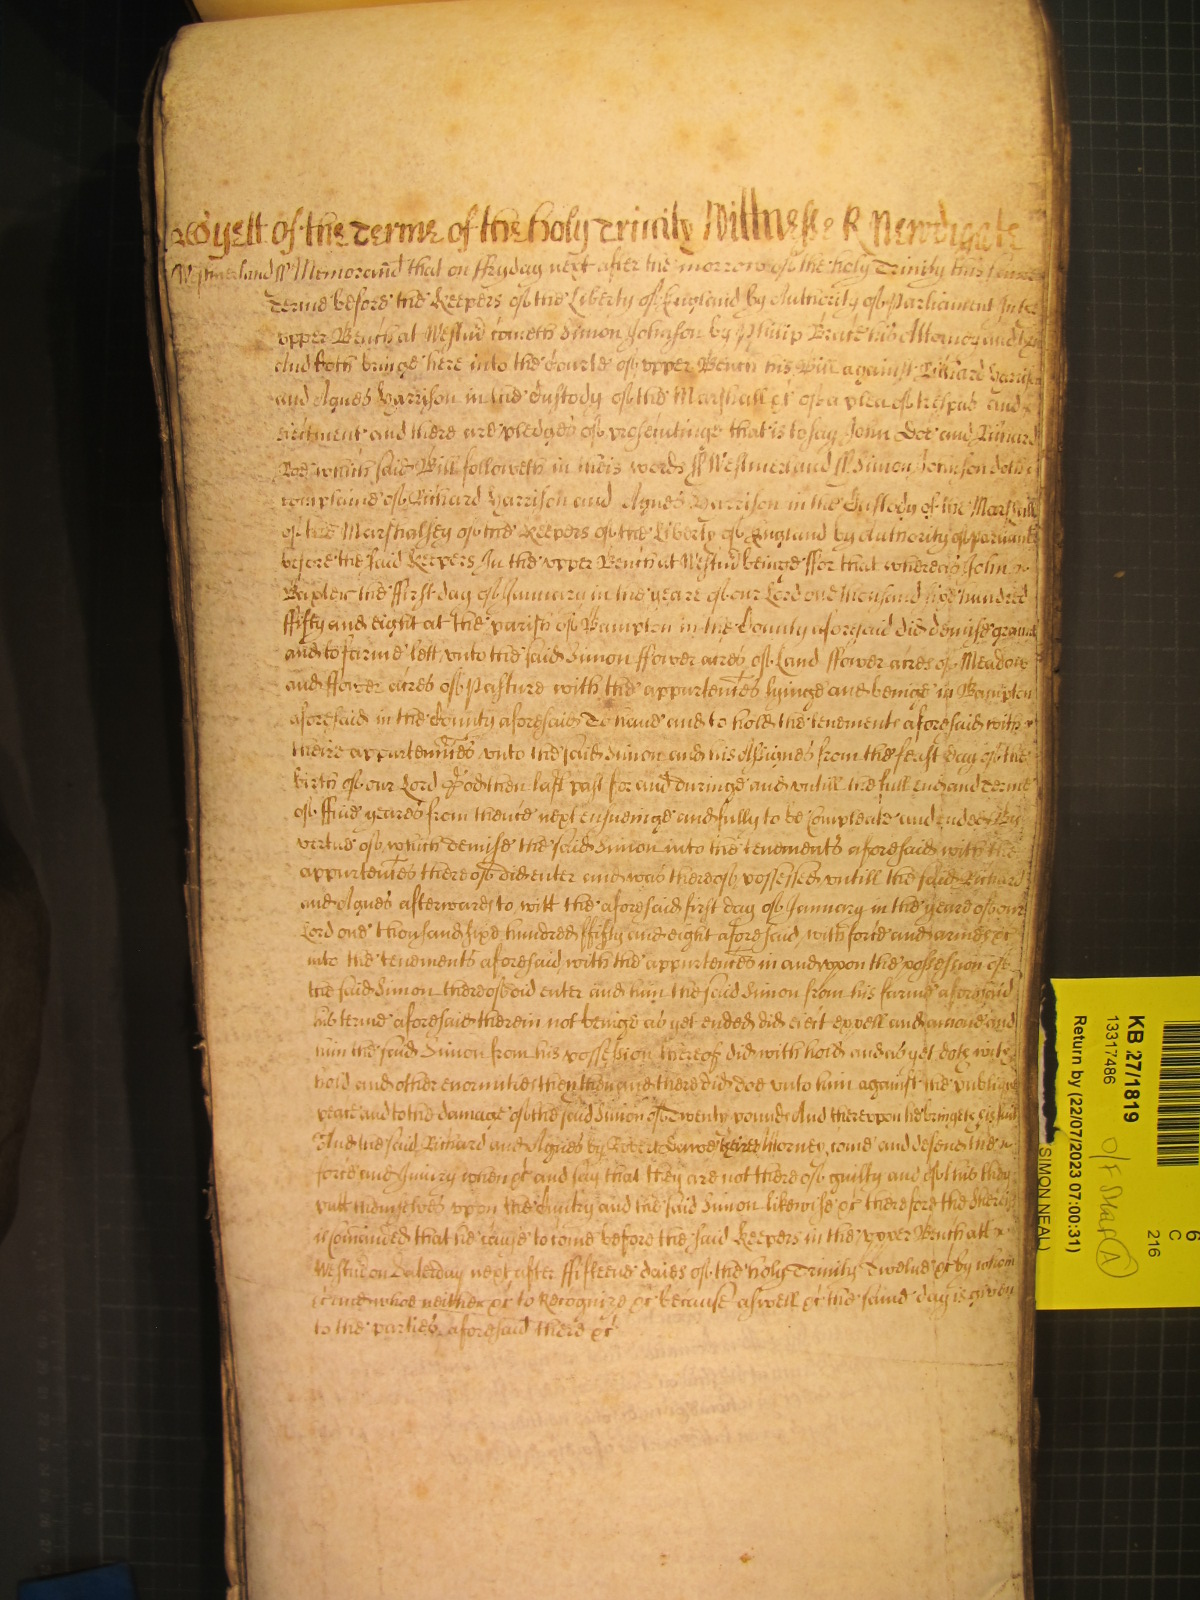 yett of the Terme of the holy Trinity Wittnesse R Newdigate
Westmerland ss Memorand that on ffryday next after the morrow of the holy Trinity this same
Terme before the Keepers of the Liberty of England by Authority of Parliament In the
upper Bench at Westm cometh Simon Johnson by Philip his Attorney and
And doth bringe here into the Courte of upper Bench his Bill against Richard Harrison
and Agnes Harrison in the Custody of the Marshall &c of a plea of trespas and
eiectment and there are pledges of prosecutinge that is to say John Doe and Richard
Roe which said Bill followeth in theis words ss Westmerland ss Simon Johnson doth
complaine of Richard Harrison and Agnes Harrison in the Custody of the Marshall
of the Marshalsey of the Keepers of the Liberty of England by Authority of parliament
before the said Keepers In the upper Bench at Westm beinge ffor that whereas John
the ffirst day of January in the yeare of our Lord one thousand sixe hundred
ffifty and eight at the parish of Bampton in the County aforesaid did demise graunt
and to farme lett unto the said Simon ffower acres of Land ffower acres of Meadow
and ffower acres of Pasture with the appurtences lyinge and beinge in Bampton
aforesaid in the County aforesaid To haue and to hold the tenements aforesaid with
theire appurtences unto the said Simon and his Assignes from the feast day of the
birth of our Lord God then last past for and duringe and untill the full end and Terme
of ffiue yeares from thence next ensueinge and fully to be Compleate and ended By
vertue of which demise the said Simon into the tenements aforesaid with the
appurtences thereof did enter and was thereof possessed untill the said Richard
and Agnes afterwards to witt the aforesaid first day of January in the yeare of our
Lord one thousand sixe hundred ffifty and eight aforesaid with force and armes &c
into the tenements aforesaid with the appurtences in and upon the possession of
the said Simon thereof did enter and him the said Simon from his farme aforesaid
his terme aforesaid therein not beinge as yet ended did eiect expell and amoue and
him the said Simon from his possession thereof did with hold and as yet doth with
hold and other enormities then and there did doe unto him against the publique
peace and to the damage of the said Simon of Twenty pounds And thereupon he bringeth his suit
And the said Richard and Agnes by Robert theire Attorney come and defend the
force and Iniury when &c and say that they are not thereof guilty and of this they
putt themselves upon the Cuntry and the said Simon likewise &c therefore the Sheriff
is comanded that he cause to come before the said Keepers in the upper Bench att
Westm on Saterday next after ffifteene daies of the holy Trinity Twelue &c by whom
&c and whoe neither &c to Recognize &c because aswell &c the same day is given
to the parties aforesaid there &c
KB 27/1819
13317486
Return by (22/07/2023 07:00:31)
SIMON NEAL)
216
C
6
A